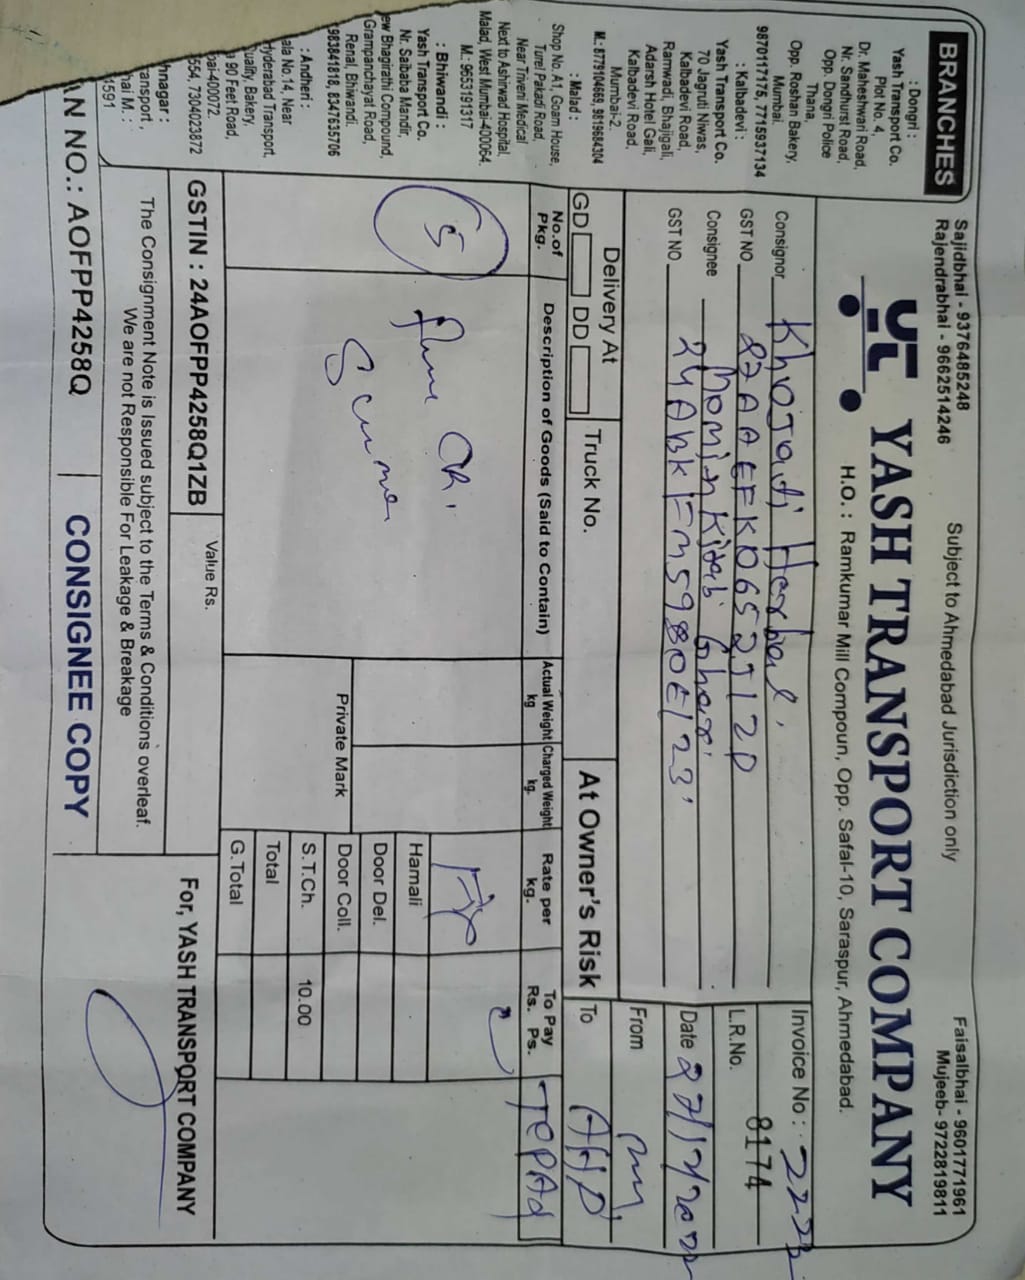 BRANCHES
: Dongri :
Yash Transport Co.
Plot No. 4,
Dr. Maheshwari Road,
Nr. Sandhurst Road,
Opp. Dongri Police
Thana,
Opp. Roshan Bakery,
Mumbai.
9870117175, 7715937134
: Kalbadevi :
Yash Transport Co.
70 Jagruti Niwas,
Kalbadevi Road,
Ramwadi, Bhajigali,
Adarsh Hotel Gali,
Kalbadevi Road,
Mumbai-2.
M.: 8779104669, 9819684304
: Malad :
Shop No. A1, Gogam House,
Turel Pakadi Road,
Near Triveni Medical
Next to Ashirwad Hospital,
Malad, West Mumbai-400064.
M.: 9653191317
: Bhiwandi :
Yash Transport Co.
Nr. Saibaba Mandir,
ew Bhagirathi Compound,
Grampanchayat Road,
Renal, Bhiwandi.
983841818, 8347635706
: Andheri :
ala No.14, Near
yderabad Transport,
uality, Bakery,
90 Feet Road,
bai-400072
554, 7304023872
hnagar :
ransport,
hai M. :
1591
Sajidbhai - 9376485248
Rajendrabhai - 9662514246
Subject to Ahmedabad Jurisdiction only
Faisalbhai - 9601771961
Mujeeb- 9722819811
YASH TRANSPORT COMPANY
H.O. : Ramkumar Mill Compoun, Opp. Safal-10, Saraspur, Ahmedabad.
Consignor Khojati Herbal.
GST NO 27AAEFK0652J1ZD
Consignee Momin Kitab Ghar
GST NO 24ABKFM5980E1Z3
Invoice No : 2223
L.R.No. 8174
Date 27/12/2022
From my
To AHD
Delivery At
GD DD
Truck No.
At Owner's Risk
No.of Pkg.
Description of Goods (Said to Contain)
Actual Weight kg
Charged Weight kg.
Rate per kg.
To Pay Rs. Ps.
5
Fix
Hamali
Door Del.
Private Mark
Door Coll.
S.T.Ch. 10.00
Total
G.Total
GSTIN : 24AOFPP4258Q1ZB
Value Rs.
For, YASH TRANSPORT COMPANY
The Consignment Note is Issued subject to the Terms & Conditions overleaf.
We are not Responsible For Leakage & Breakage
AN NO.: AOFPP4258Q
CONSIGNEE COPY